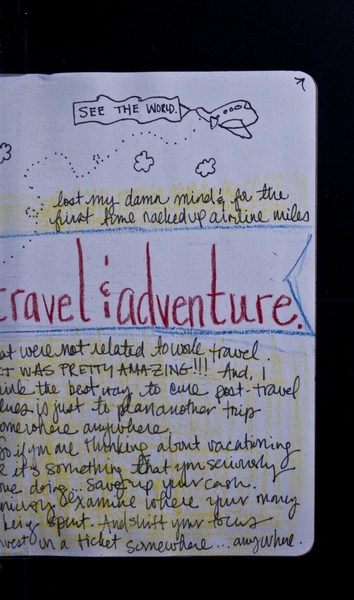 SEE THE WORLD.
lost my damn mind & for the
first time racked up airline miles
travel & adventure.
at were not related to work travel.
IT WAS PRETTY AMAZING!!! And, I
ink the best way to cure post-travel
lues is just to plan another trip
omewhere anywhere.
So if you are thinking about vacationing
it's something that you seriously
ve doing... save up your cash.
examine where your money
being spent. And shift your focus
vest in a ticket somewhere... anywhere.